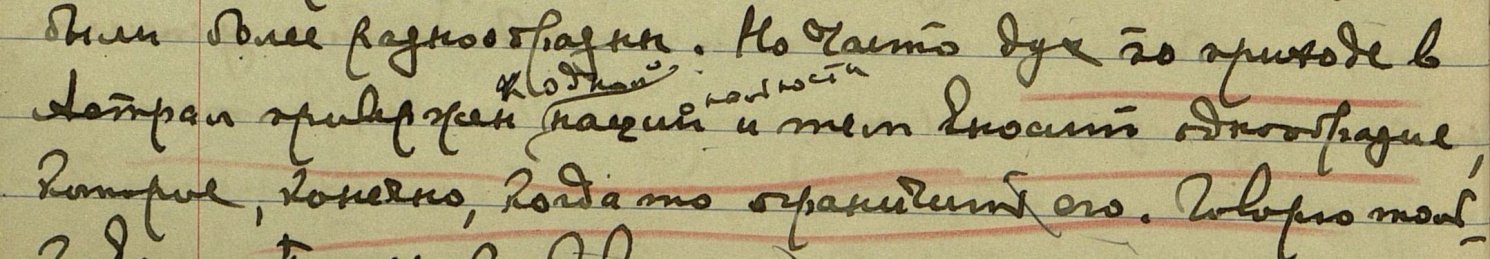 были более разнообразны. Но часто дух по приходе в
Астрал привержен к одной национальности и тем вносит однообразие,
которое, конечно, когда то ограничит его. Говорю толь-